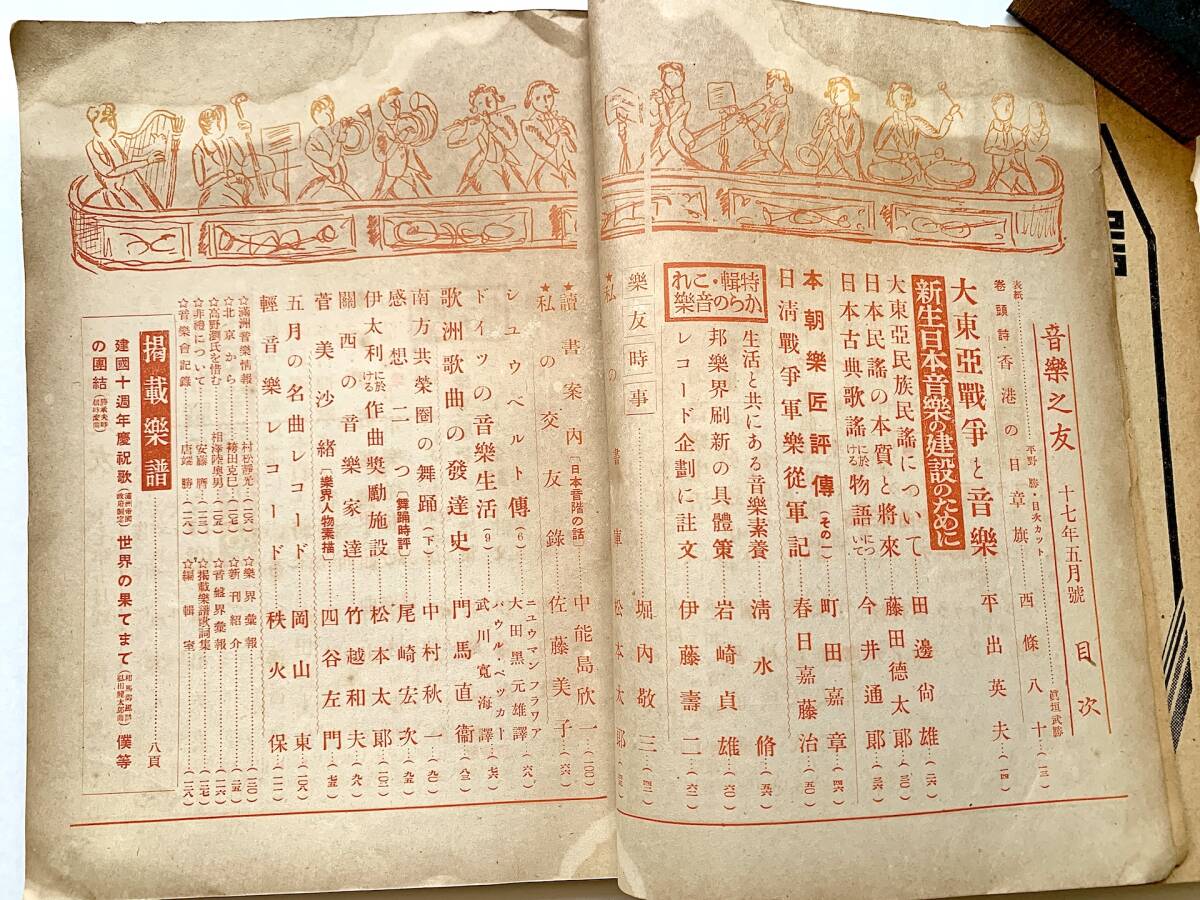 音樂之友 十七年五月號 目次
表紙 平野 勝・目次カット 眞垣武勝
卷頭詩 香港の日章旗 西條八十 (一三)
大東亞戰爭と音樂 平出英夫 (一四)
新生日本音樂の建設のために
大東亞民族民謠について 田邊尙雄 (二六)
日本民謠の本質と將來 藤田德太郞 (三〇)
日本古典歌謠に於ける物語について 今井通郞 (三六)
本朝樂匠評傳(その一) 町田嘉章 (四六)
日淸戰爭軍樂從軍記 春日嘉藤治 (五〇)
特輯・これからの音樂
生活と共にある音樂素養 淸水脩 (五六)
邦樂界刷新の具體策 岩崎貞雄 (六〇)
レコード企劃に註文 伊藤壽二 (六二)
樂友時事 堀内敬三 (四二)
★私の書庫 松本太郞
★讀書案内〔日本音階の話〕 中能島欣一 (一〇〇)
★私の交友錄 佐藤美子 (六六)
シュウベルト傳(6) ニユウマンフラワア 大田黑元雄譯 (六八)
ドイツの音樂生活(9) パウル・ベッカー 武川寬海譯 (七六)
歌洲歌曲の發達史 門馬直衞 (八三)
南方共榮圈の舞踊(下) 中村秋一 (九〇)
感想二つ〔舞踊時評〕 尾崎宏次 (九五)
伊太利に於ける作曲獎勵施設 松本太郞 (一〇三)
關西の音樂家達 竹越和夫 (九八)
菅美沙緖〔樂界人物素描〕 四谷左門 (七五)
五月の名曲レコード 岡山東 (一〇八)
輕音樂レコード 秩火保 (一一一)
☆滿洲音樂情報 村松靜光 (一二六)
☆北京から 務田克巳 (一二七)
☆高野瀏氏を惜む 相澤陸奧男 (一二五)
☆非禮について 安藤 (一一三)
☆音樂會記錄 唐端勝 (一一八)
☆樂界彙報 (一二〇)
☆新刊紹介 (一二五)
☆音盤界彙報 (一二六)
☆揭載樂譜歌詞集 (一二七)
☆編輯室 (一二八)
揭載樂譜 八頁
建國十週年慶祝歌(滿洲帝國政府制定) 世界の果てまで(相馬御風詩 弘田龍太郞曲) 僕等
の團結